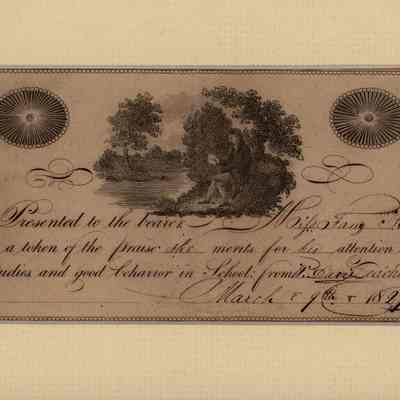 Presented to the bearer Miss Fany
a token of the praise she merits for her attention
udies and good behavior in School; from
March 9th